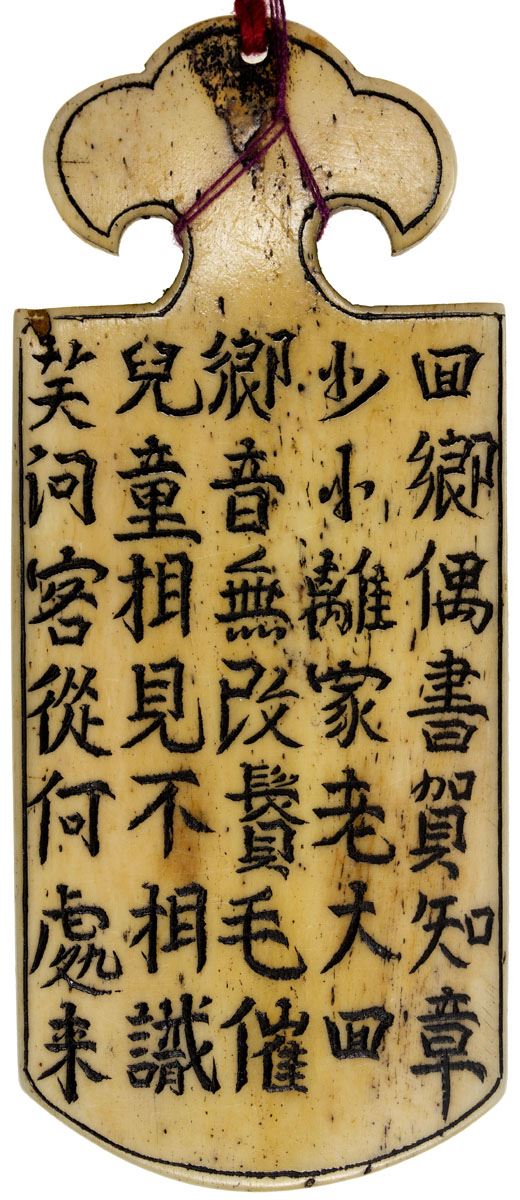 回鄉偶書賀知章
少小離家老大回
鄉音無改鬢毛催
兒童相見不相識
笑問客從何處来